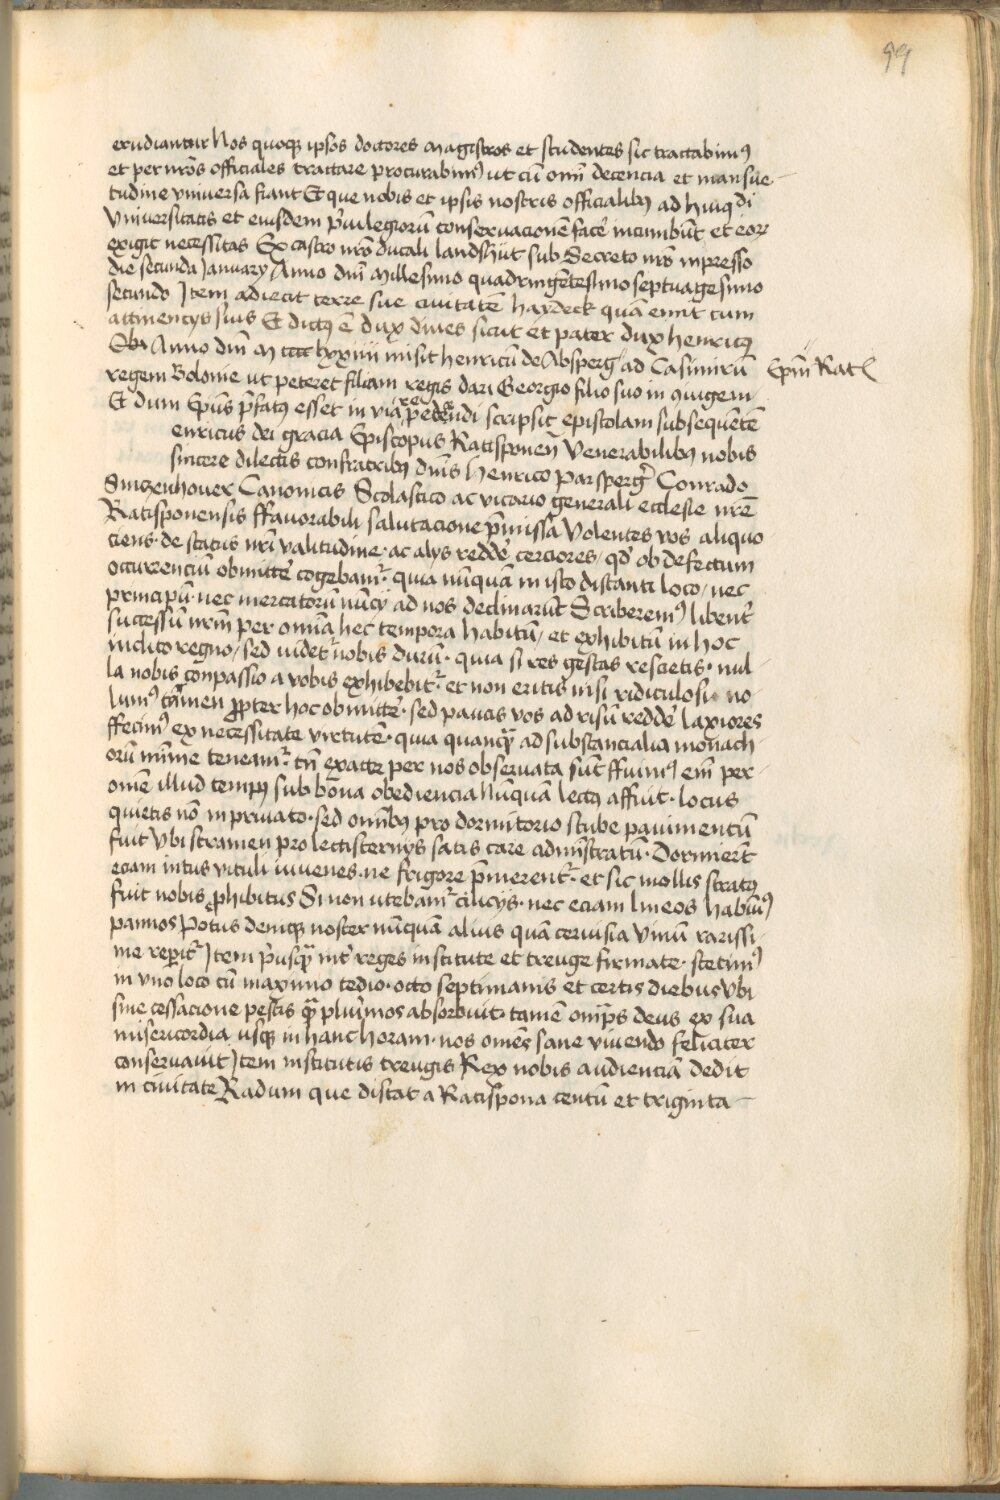 99
erudiantur Nos quoqꝫ ipsos doctores magistros et studentes sic tractabimꝰ
et per nr̄os officiales tractare procurabimꝰ ut cū om̄i decencia et mansue-
tudine vniuersa fiant Et que nobis et ipsis nostris officialibꝫ ad huiꝰ di
Vniuersitatis et eiusdem p̄uilegiorū conseruacionē facēr incumbūt et eoꝝ
exigit necessitas Ex castro nr̄o ducali landshūt sub Secreto nr̄o inpresso
die secunda January Anno dn̄i Millesimo quadringētesimo septuagesimo
secundo Item adiecit terre sue ciuitatē haydeck quā emit cum
attinencys suis Et dictꝰ ē dux diues sicut et pater dux henricꝰ
Anno dn̄i M cccc lxxiiii misit henricū de Absperg ad Casimirū
Ep̄m Rat
regem Polonie ut peteret filiam regis dari Georgio filio suo in ꝯiugem
Et dum Ep̄us p̄fatꝰ esset in via redeundi scripsit epistolam subsequētē
enricus dei gracia Episcopus Ratisponen̄ Venerabilibꝫ nobis
sincere dilectis confratribꝫ dn̄is Henrico parsperg̓ Conrado
Sintzenhouer Canonicis Scolastico ac vicario generali ecclesie nr̄e
Ratisponensis ffauorabili salutacione p̄missa Volentes vos aliquo-
ciens de status nr̄i valitudine ac alys reddē cerciores qd̓ ob defectum
occurrenciū obmittē cogebamᷣ quia nūnquā in isto distanti loco nec
principū nec mercatorū nūcy ad nos declinarūt Scriberemꝰ libent̓
successū nr̄m per omīa hec tempora habitū et exhibitū in hoc
inclito regno sed videtᷣ nobis durū quia si res gestas rescietis nul-
la nobis conpassio a vobis exhibebitᷣ et non eritis nisi ridiculosi no-
lumꝰ tamen ꝓpter hoc obmittē sed paucis vos ad risū reddē laxiores
ffecimꝰ ex necessitate virtutē quia quanqꝫ ad substancialia monach-
orū mīme teneamᷣ tn̄ exacte per nos obseruata sūt ffuimꝰ em̄ per
om̄e illud tempꝰ sub bona obediencia Nūnquā lectꝰ affuit locus
quietis nō in priuato sed omībꝫ pro dormitorio stube pauimentū
fuit Vbi stramen pro lectisternys satis care admīstratū Dormierūt
eciam intus vituli iuuenes ne frigore p̄merentᷣ et sic mollis stratꝰ
fuit nobis ꝓhibitus Si non utebamᷣ cilicijs nec eciam lineos habuimꝰ
pannos Potus deniqꝫ noster nūnquā alius quā ceruisia Vinū rarissi-
me reꝑitᷣ Item p̓usqꝫ int̓ reges institute et treuge firmate stetimꝰ
in vno loco cū maximo tedio octo septimanis et certis diebus Vbi
sine cessacione pestis qꝫ plurimos absorbuit tamē om̄ps deus ex sua
misericordia usqꝫ in hanc horam nos omēs sane viuendo feliciter
conseruauit Item institutis treugis Rex nobis audienciā dedit
in ciuitate Radum que distat a Ratispona centū et triginta